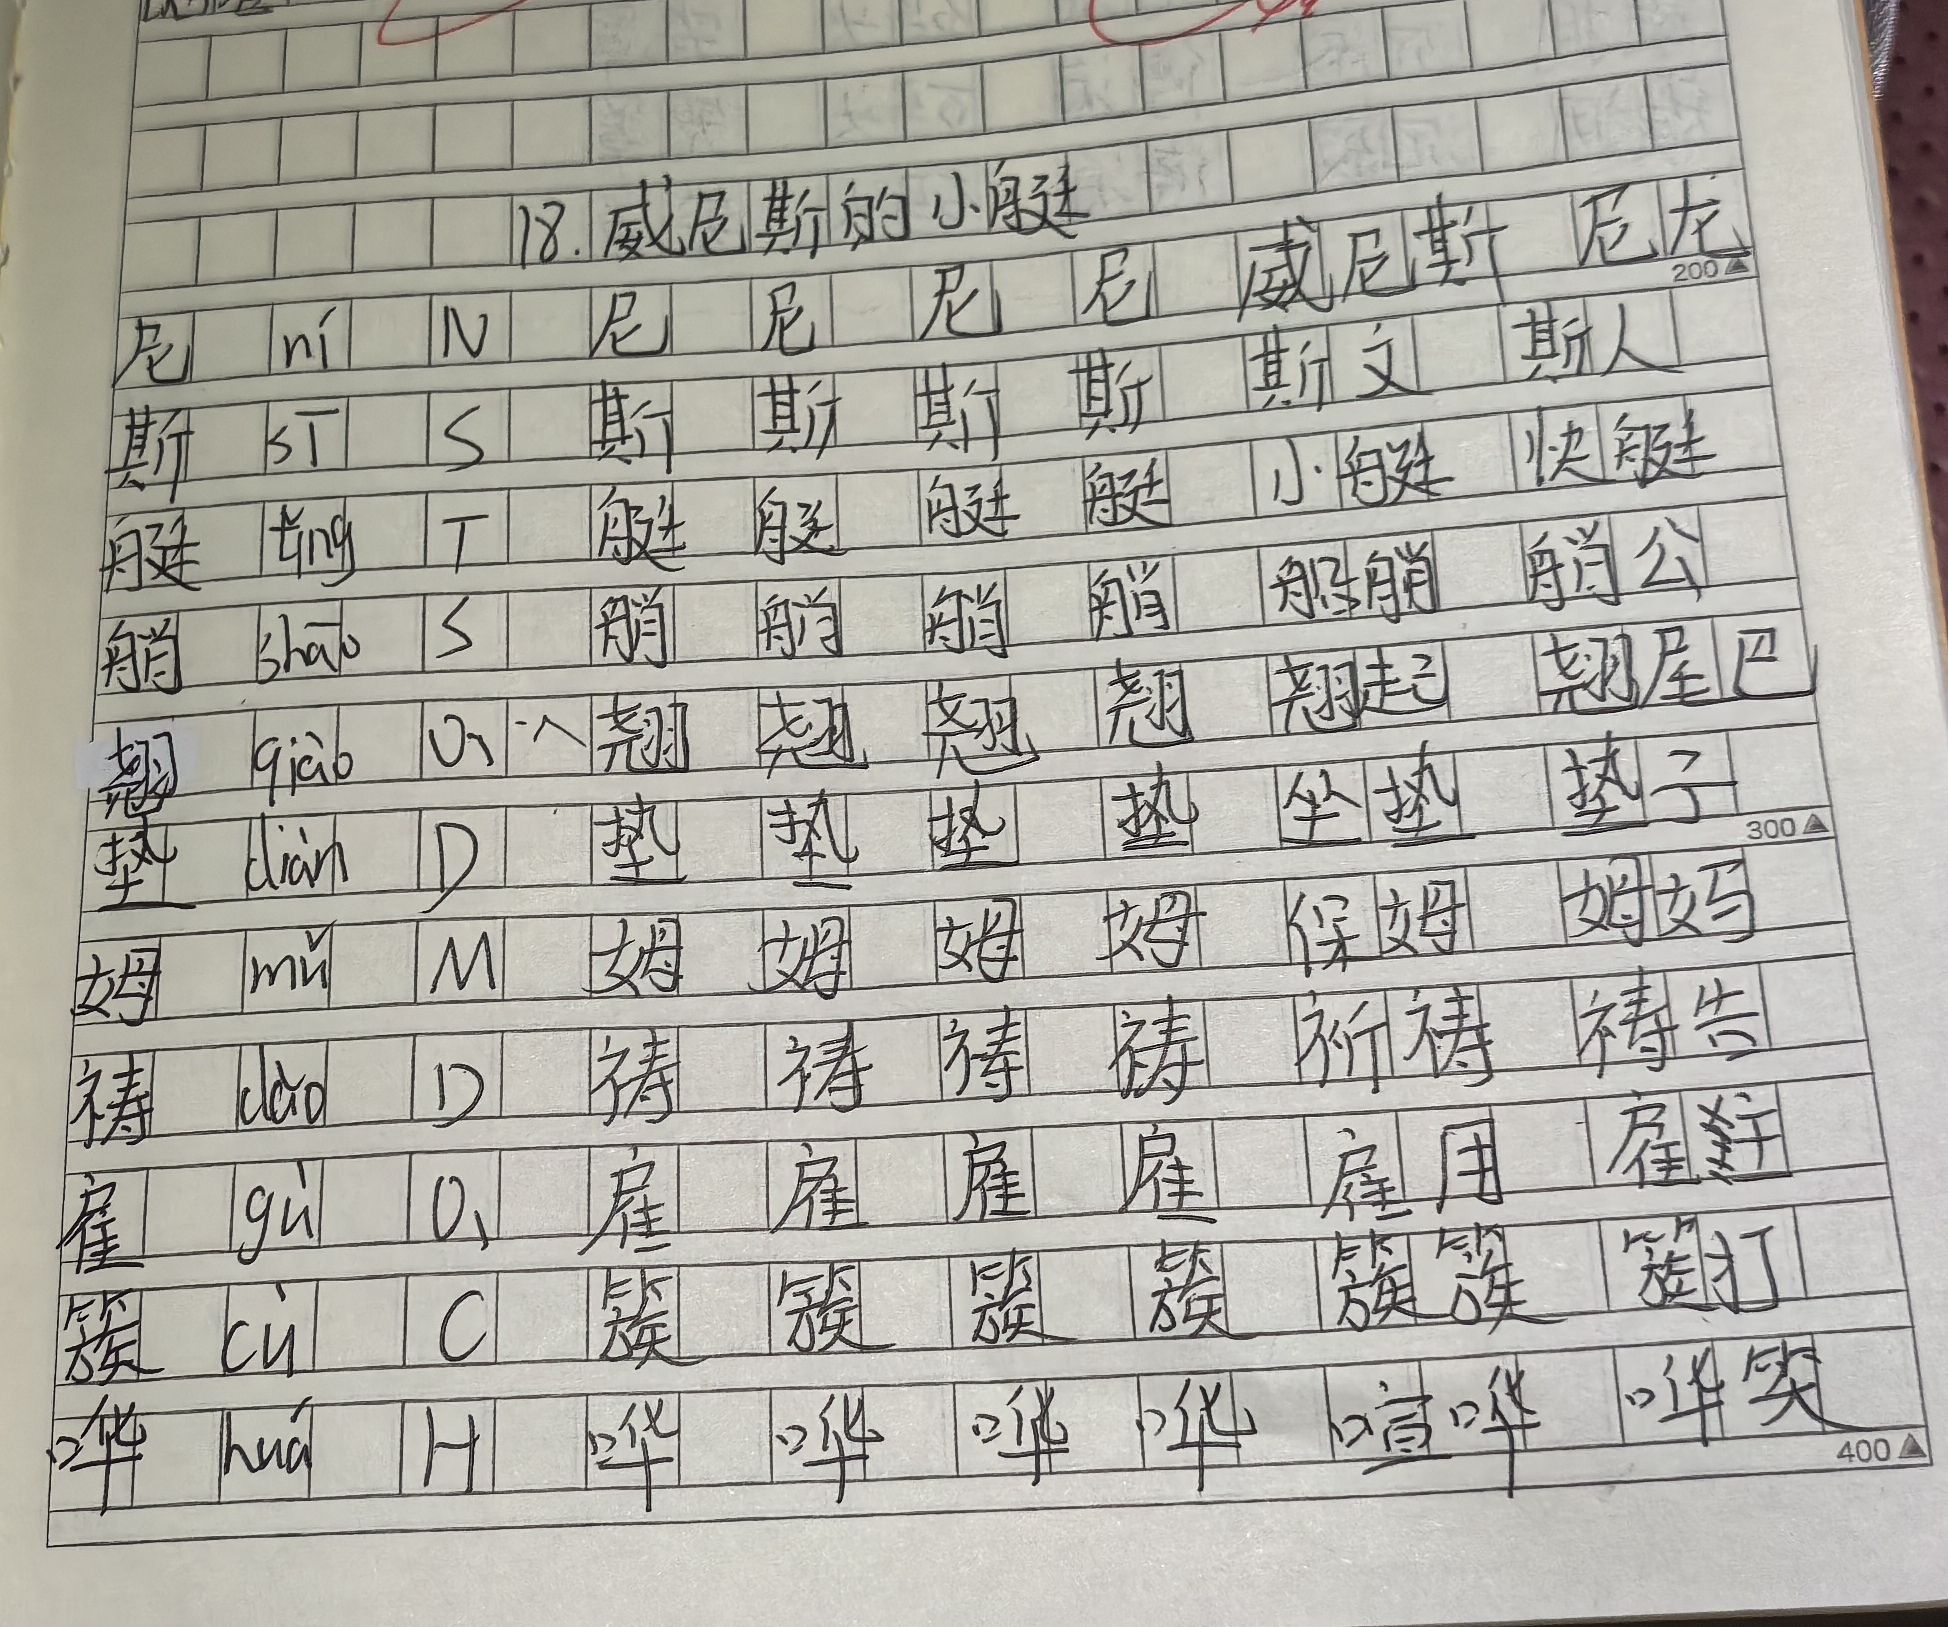 18.威尼斯的小艇
尼 ní N 尼 尼 尼 尼 威尼斯 尼龙
200
斯 sī S 斯 斯 斯 斯 斯文 斯人
艇 tǐng T 艇 艇 艇 艇 小艇 快艇
艄 shāo S 艄 艄 艄 艄 船艄 艄公
翘 qiào Q 翘 翘 翘 翘 翘起 翘尾巴
垫 diàn D 垫 垫 垫 垫 坐垫 垫子
300
姆 mǔ M 姆 姆 姆 姆 保姆 姆妈
祷 dǎo D 祷 祷 祷 祷 祈祷 祷告
雇 gù Q 雇 雇 雇 雇 雇用 雇
簇 cù C 簇 簇 簇 簇 簇簇 簇打
哗 huá H 哗 哗 哗 哗 喧哗 哗笑
400